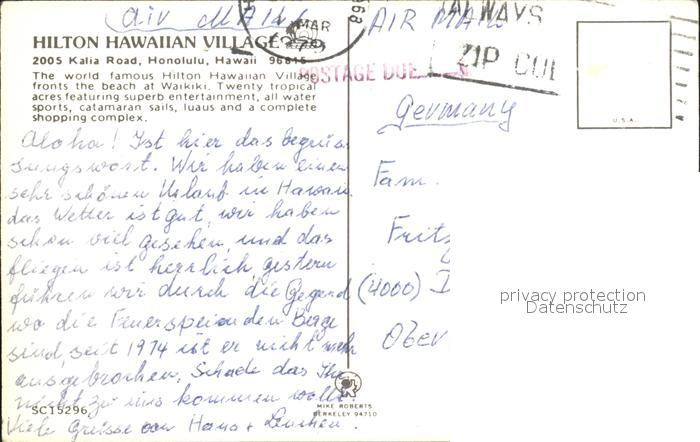 air MAIL
MAR
968
AIR MAIL
ALWAYS
ZIP CODE
POSTAGE DUE
HILTON HAWAIIAN VILLAGE
2005 Kalia Road, Honolulu, Hawaii 96815
The world famous Hilton Hawaiian Village
fronts the beach at Waikiki. Twenty tropical
acres featuring superb entertainment, all water
sports, catamaran sails, luaus and a complete
shopping complex.
U.S.A.
Germany
Fam.
Fritz
(4000) D
Ober
Aloha! Ist hier das begrüs-
sungswort. Wir haben einen
sehr schönen Urlaub in Hawaii.
das Wetter ist gut, wir haben
schon viel gesehen, und das
fliegen ist herrlich, gestern
führen wir durch die Gegend
wo die Feuerspeienden Berge
sind, seit 1974 ist er nicht mehr
ausgebrochen, Schade das Ihr
nicht zu uns kommen wollt.
Viele Grüsse von Hans +
SC15296
MIKE ROBERTS
BERKELEY 94710
privacy protection
Datenschutz